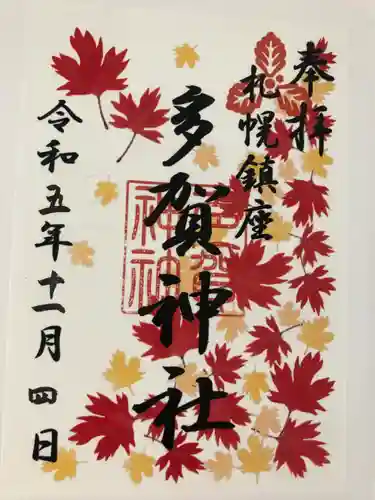 奉拝
札幌鎮座
多賀神社
令和五年十一月四日